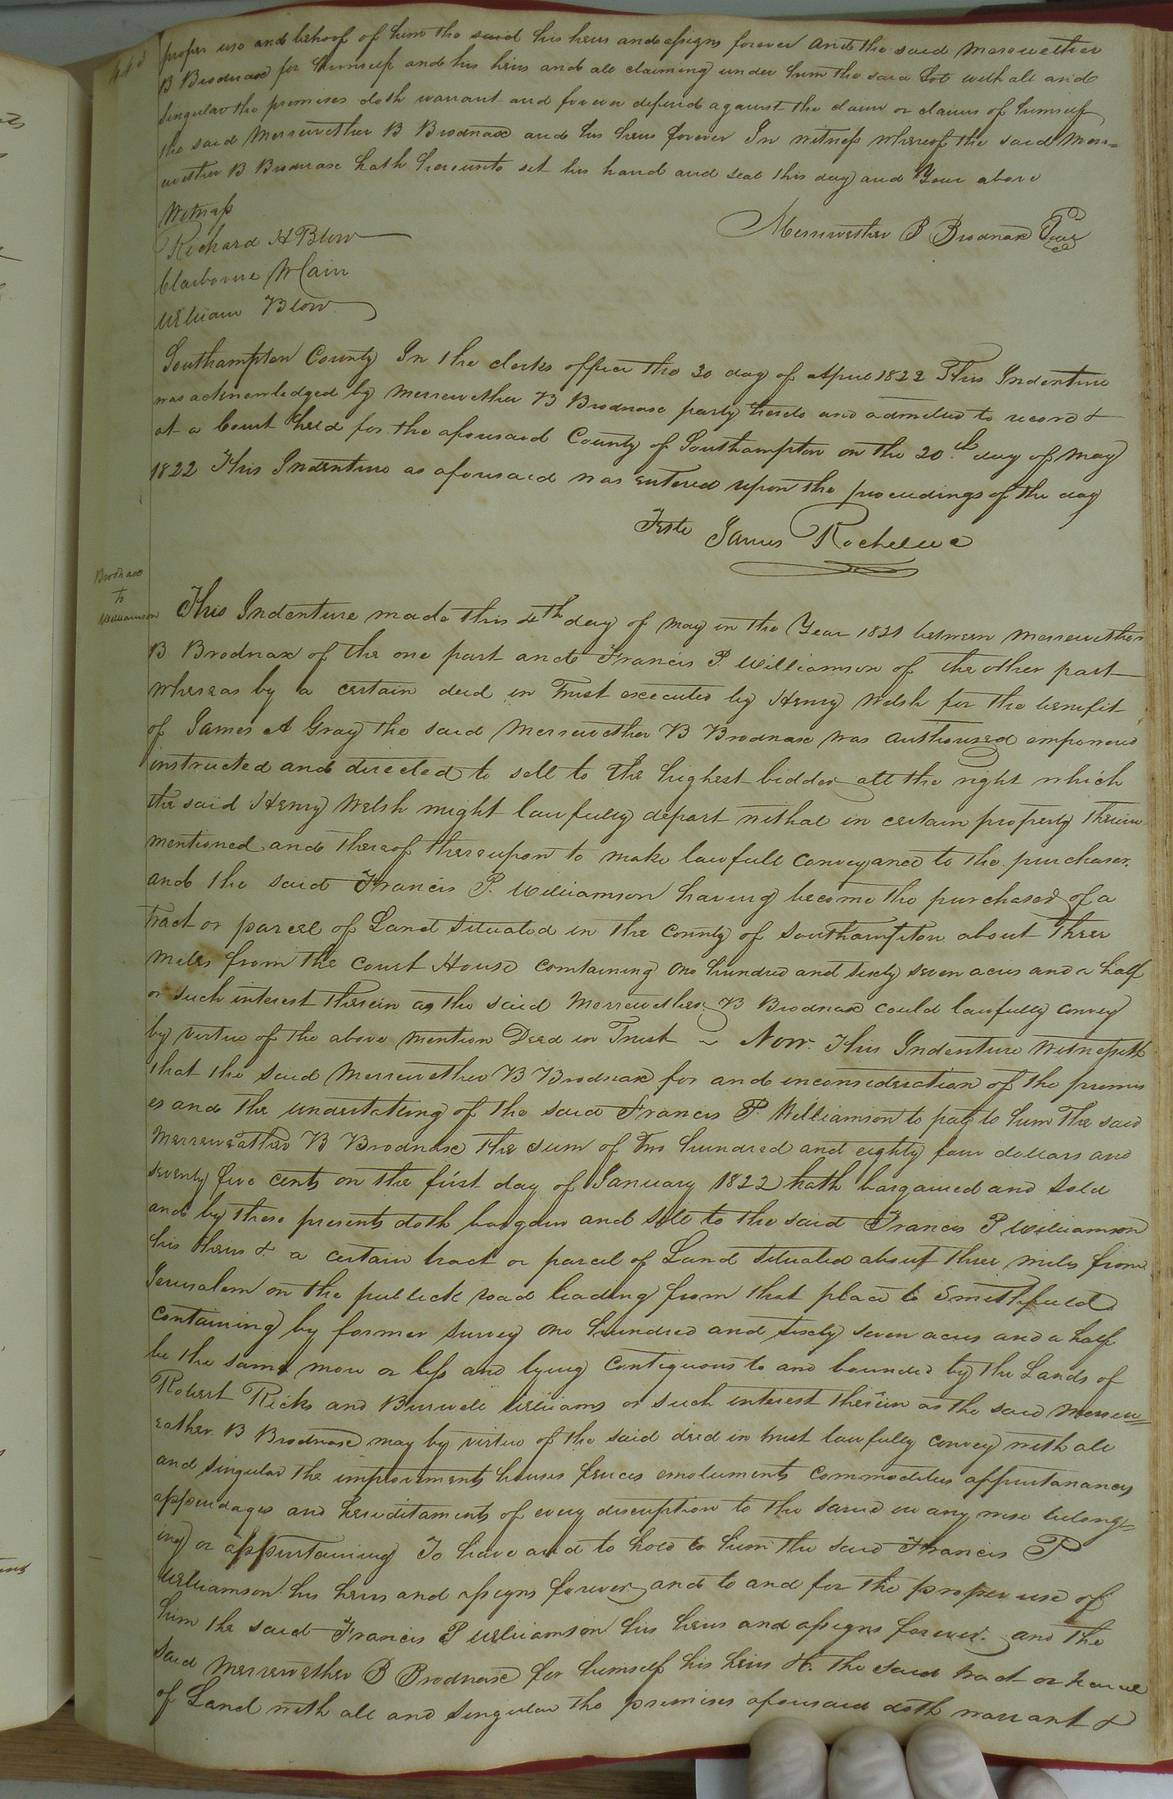 proper use and behoof of him the said his heirs and assigns forever and the said Merewether
B Brodnax for himself and his heirs and all claiming under him the said Lot with all and
singular the premises doth warrant and forever defend against the claim or claims of himself
the said Merrewether B Brodnax and his heirs forever In witness whereof the said Merre=
wether B Brodnax hath hereunto set his hand and seal this day and Year above
Witness
Richard H Blow
Merrewether B Brodnax Seal
Claiborne
William Blow
Southampton County In the clerks office the 20 day of April 1822 This Indenture
was acknowledged by Merrewether B Brodnax party hereto and admitted to record &
at a Court held for the aforesaid County of Southampton on the 20th day of May
1822 This Indenture as aforesaid was entered upon the proceedings of the day
Teste James Rochelle
Brodnax
to
Williamson
This Indenture made this 4th day of May in the Year 1821 between Merrewether
B Brodnax of the one part and Francis P. Williamson of the other part
whereas by a certain deed in Trust executed by Henry Welsh for the benefit
of James A Gray the said Merrewether B Brodnax was authorised empowered
instructed and directed to sell to the highest bidder all the right which
the said Henry Welsh might lawfully depart withal in certain property therein
mentioned and thereof thereupon to make lawfull conveyance to the purchaser
and the said Francis P. Williamson having become the purchaser of a
tract or parcel of Land situated in the County of Southampton about three
miles from the Court House containing one hundred and sixty seven acres and a half
or such interest therein as the said Merrewether B Brodnax could lawfully convey
by virtue of the above mention Deed in Trust ~ Now This Indenture Witnesseth
that the said Merrewether B Brodnax for and inconsideration of the premis
es and the undertaking of the said Francis P. Williamson to pay to him the said
Merreweather B Brodnax the sum of Two hundred and eighty four dollars and
seventy five cents on the first day of January 1822 hath bargained and sold
and by these presents doth bargain and sell to the said Francis P Williamson
his heirs & a certain tract or parcel of Land situated about three miles from
Jerusalem on the publick road leading from that place to Smithfield
containing by former survey one hundred and sixty seven acres and a half
be the same more or less and lying contiguous to and bounded by the Lands of
Robert Ricks and Burwell Williams or such interest therein as the said Merrew=
eather B Brodnax may by virtue of the said deed in trust lawfully convey with all
and singular the improvements houses fences emoluments commodities appurtanances
appendages and hereditaments of every discription to the same in any wise belong=
ing or appurtaining To have and to hold to him the said Francis P
Williamson his heirs and assigns forever and to and for the proper use of
him the said Francis P Williamson his heirs and assigns forever. and the
said Merrewether B Brodnax for himself his heirs &c the said tract or parcel
of Land with all and singular the premises aforesaid doth warrant &